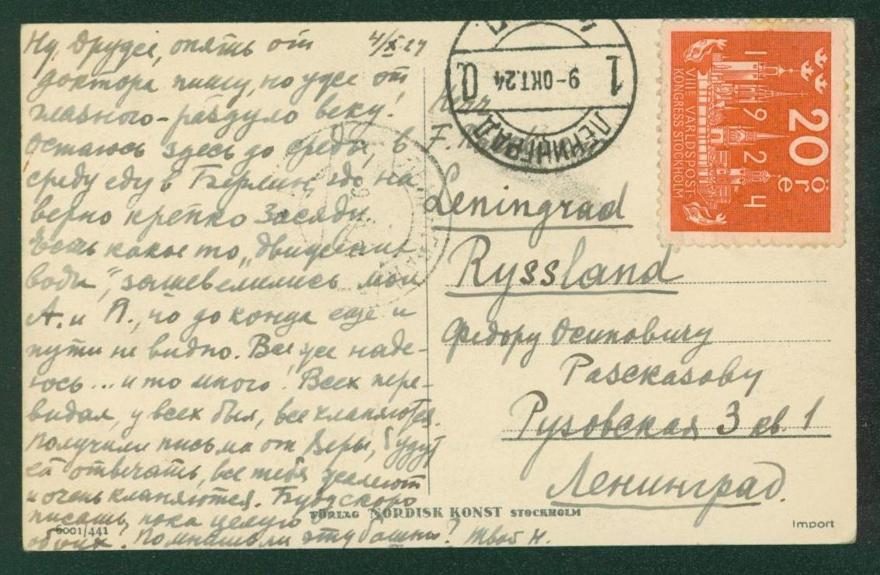 Ну, дружε, опять от 4/X 24
доктора пишу, но уже от
главного - раздуло веку!
Остаюсь здесь до среды, в
среду еду в Берлин, где на-
верно крепко засяду.
Есть какое то „движение
воды“, зашевелились мои
А. и П., но до конца ещё и
пути не видно. Все же наде-
юсь... и то много! Всех пере-
видал, у всех был, все кланяются.
Получили письма от Веры, будут
ей отвечать, все тебя жалеют
и очень кланяются. Буду скоро
писать, пока целую
обоих. Помнишь ли эту башню? Твоя Н.
6001/441
ЛЕНИНГРАД
9-ОКТ.24
1
20 öre
1924
VIII VÄRLDSPOST
KONGRESS STOCKHOLM
Leningrad
Ryssland
Федору Осиповичу
Рассказову
Рузовская 3 кв. 1
Ленинград.
FÖRLAG NORDISK KONST STOCKHOLM
Import